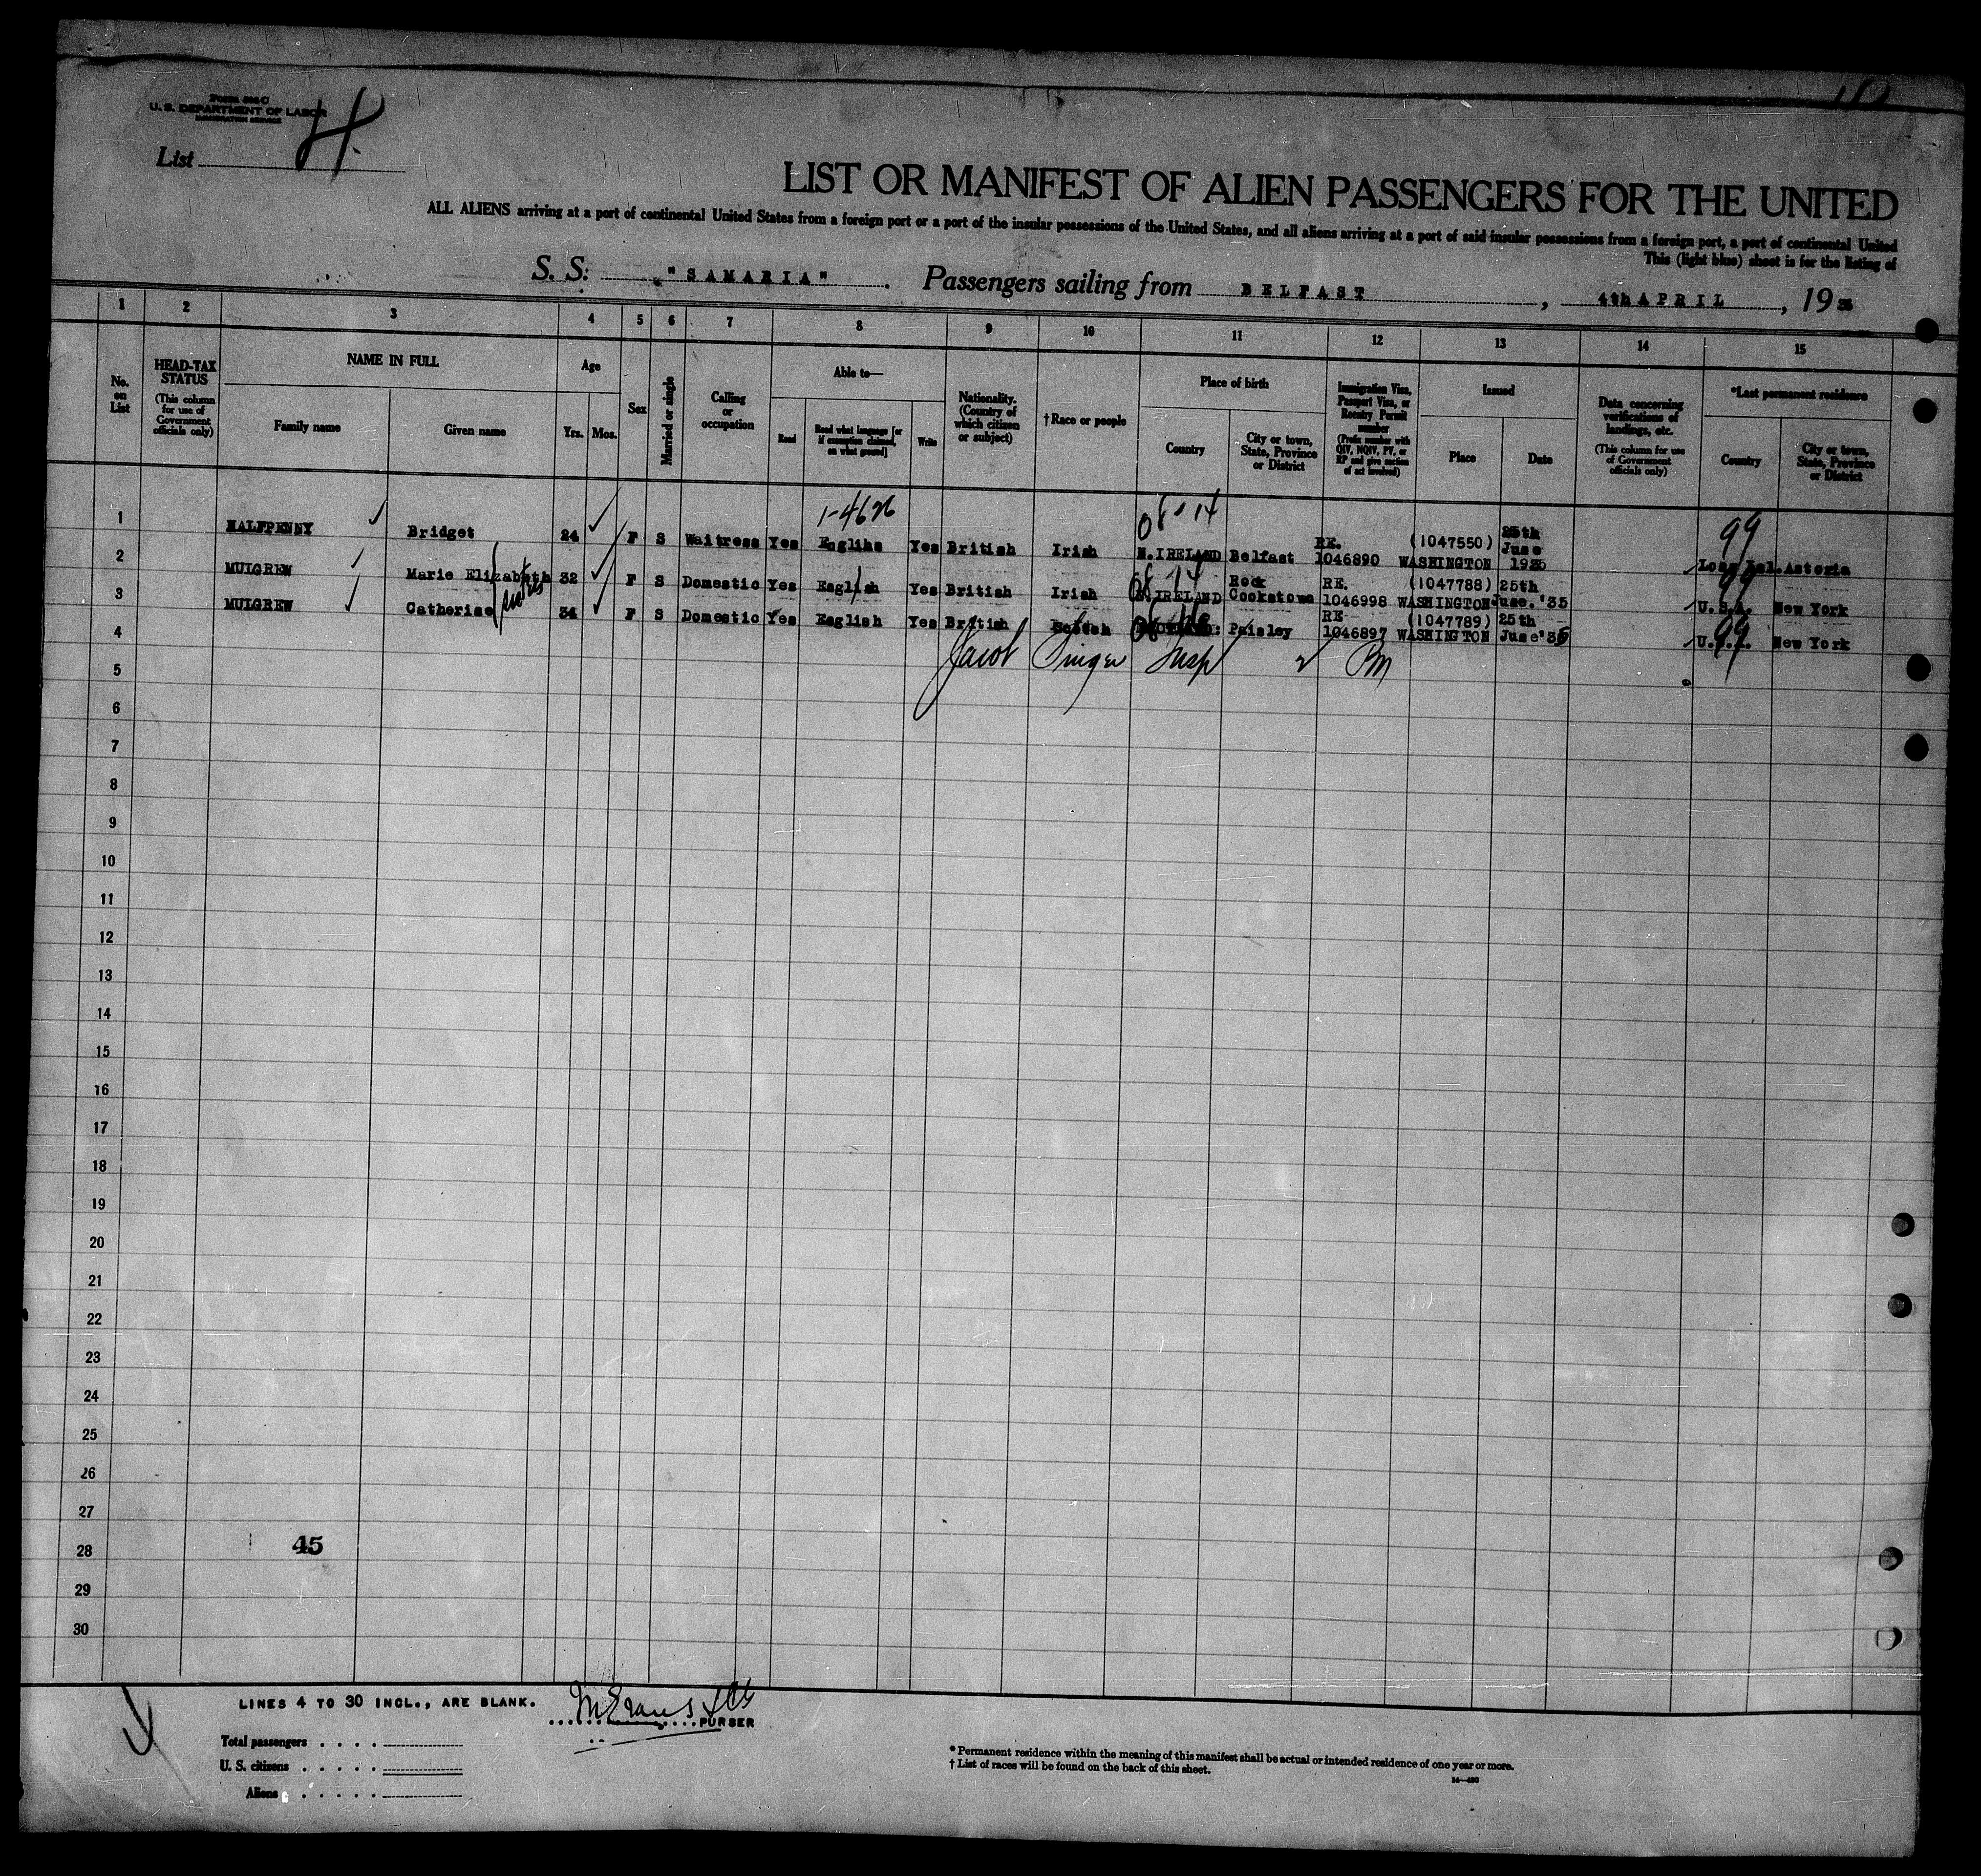 U. S. DEPARTMENT OF LABOR
IMMIGRATION SERVICE
List 4.
LIST OR MANIFEST OF ALIEN PASSENGERS FOR THE UNITED
ALL ALIENS arriving at a port of continental United States from a foreign port or a port of the insular possessions of the United States, and all aliens arriving at a port of said insular possessions from a foreign port, a port of continental United
This (light blue) sheet is for the listing of
S. S. "SAMARIA" Passengers sailing from BELFAST, 4th APRIL, 19
1 2 3 4 5 6 7 8 9 10 11 12 13 14 15
No. on List
HEAD-TAX STATUS (This column for use of Government officials only)
NAME IN FULL Family name Given name
Age Yrs. Mos.
Sex
Married or single
Calling or occupation
Able to— Read Read what language [or if exemption claimed, on what ground] Write
Nationality. (Country of which citizen or subject)
†Race or people
Place of birth Country City or town, State, Province or District
Immigration Visa, Passport Visa, or Reentry Permit number (Prefix number with QIV, NQIV, PV, or RP and give section of act involved)
Issued Place Date
Data concerning verifications of landings, etc. (This column for use of Government officials only)
*Last permanent residence Country City or town, State, Province or District
1 HALFPENNY Bridget 24 F S Waitress Yes Englihs Yes British Irish N.IRELAND Belfast RE. 1046890 (1047550) WASHINGTON 25th June 1935 Long Isl. Astoria
2 MULGREW Marie Elizabeth 32 F S Domestic Yes English Yes British Irish N.IRELAND Rock Cookstown RE. 1046998 (1047788) WASHINGTON 25th June.'35 U.S.A. New York
3 MULGREW Catherine 34 F S Domestic Yes English Yes British Scotch Paisley RE 1046897 (1047789) WASHINGTON 25th June'35 U.S.A. New York
4
Jacob Singer Insp
5
6
7
8
9
10
11
12
13
14
15
16
17
18
19
20
21
22
23
24
25
26
27
45
28
29
30
LINES 4 TO 30 INCL., ARE BLANK.
PURSER
Total passengers
U. S. citizens
Aliens
* Permanent residence within the meaning of this manifest shall be actual or intended residence of one year or more.
† List of races will be found on the back of this sheet.